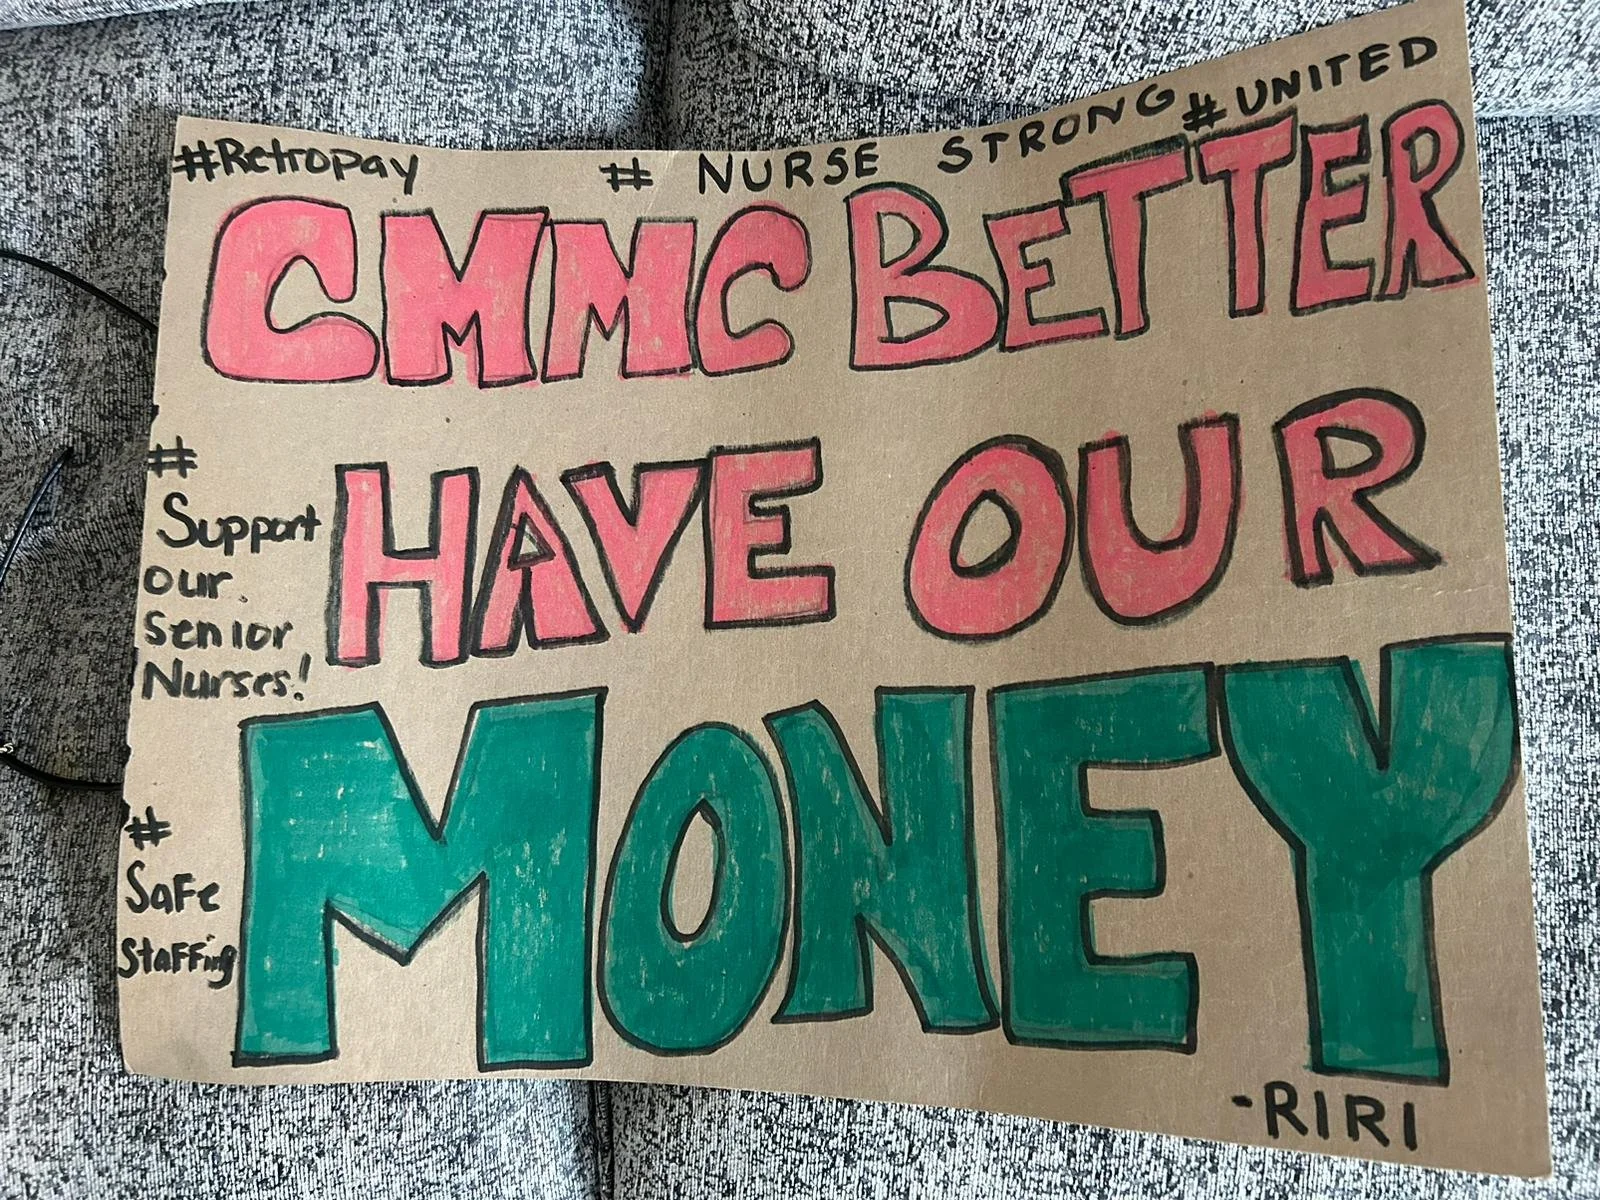 #Retropay # NURSE STRONG #UNITED
CMMC BETTER
HAVE OUR
MONEY
#
Support
our
Senior
Nurses!
#
Safe
Staffing
-RIRI